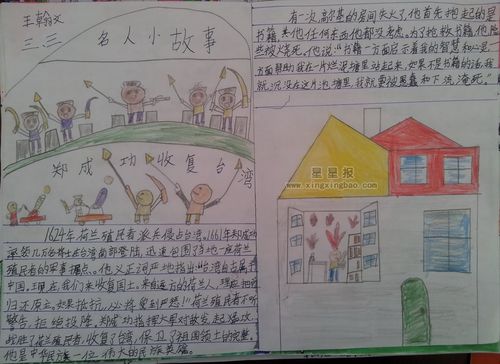 王翰文
三.三
名人小故事
郑成功收复台湾
1624年荷兰殖民者派兵侵占台湾。1661年郑成功
率领几万名将士在台湾南部登陆,迅速包围了当地一座荷兰
殖民者的军事据点。他义正词严地指出:台湾自古属于
中国,现在我们来收复国土。来自远方的荷兰人,理应把它
归还原主。如果抵抗,必将受到严惩!荷兰殖民者不听
警告,拒绝投降,郑成功指挥火军对敌发起猛攻,
战胜了荷兰殖民者,收复了台湾,保卫了祖国领土的完整。
他是中华民族一位伟大的民族英雄。
有一次,高尔基的房间失火了,他首先抱起的是
书籍,其他任何东西他都没考虑。为了抢救书籍,他险
些被烧死。他说:“书籍一方面启示着我的智慧和心灵,一
方面帮助我在一片烂泥塘里站起来,如果不是书籍的话,我
就沉没在这片泥塘里,我就要被愚蠢和下流淹死。”
星星报
www.xingxingbao.com